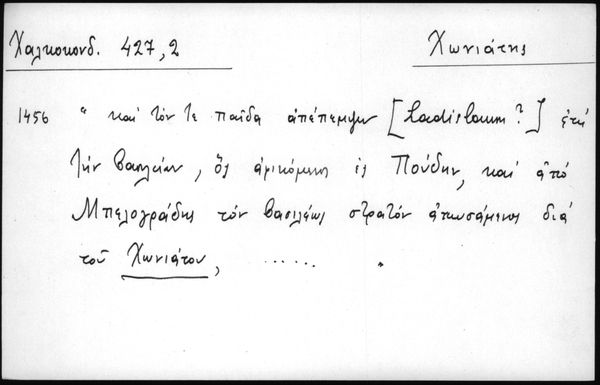 Χαλκοκονδ. 427,2
Χωνιάτης
1456 " καὶ τόν τε παῖδα ἀπέπεμψεν [Ladislaum?] ἐπὶ
τὴν βασιλείαν, ὃς ἀφικόμενος ἐς Πούδην, καὶ ἀπό
Μπελογράδης τόν βασιλέως στρατόν ἀπωσάμενος διά
τοῦ Χωνιάτου, ...... "